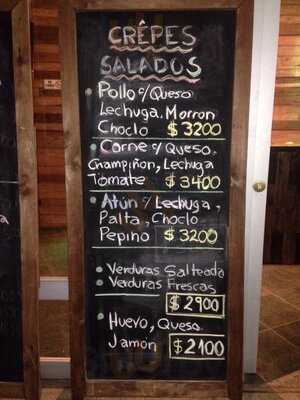 CRÊPES
SALADOS
• Pollo c/ Queso
Lechuga, Morron
Choclo $3200
• Carne c/ Queso,
Champiñon, Lechuga
Tomate $3400
• Atún c/ Lechuga,
Palta, Choclo
Pepino $3200
• Verduras Salteada
• Verduras Frescas
$2900
• Huevo, Queso,
Jamón $2100